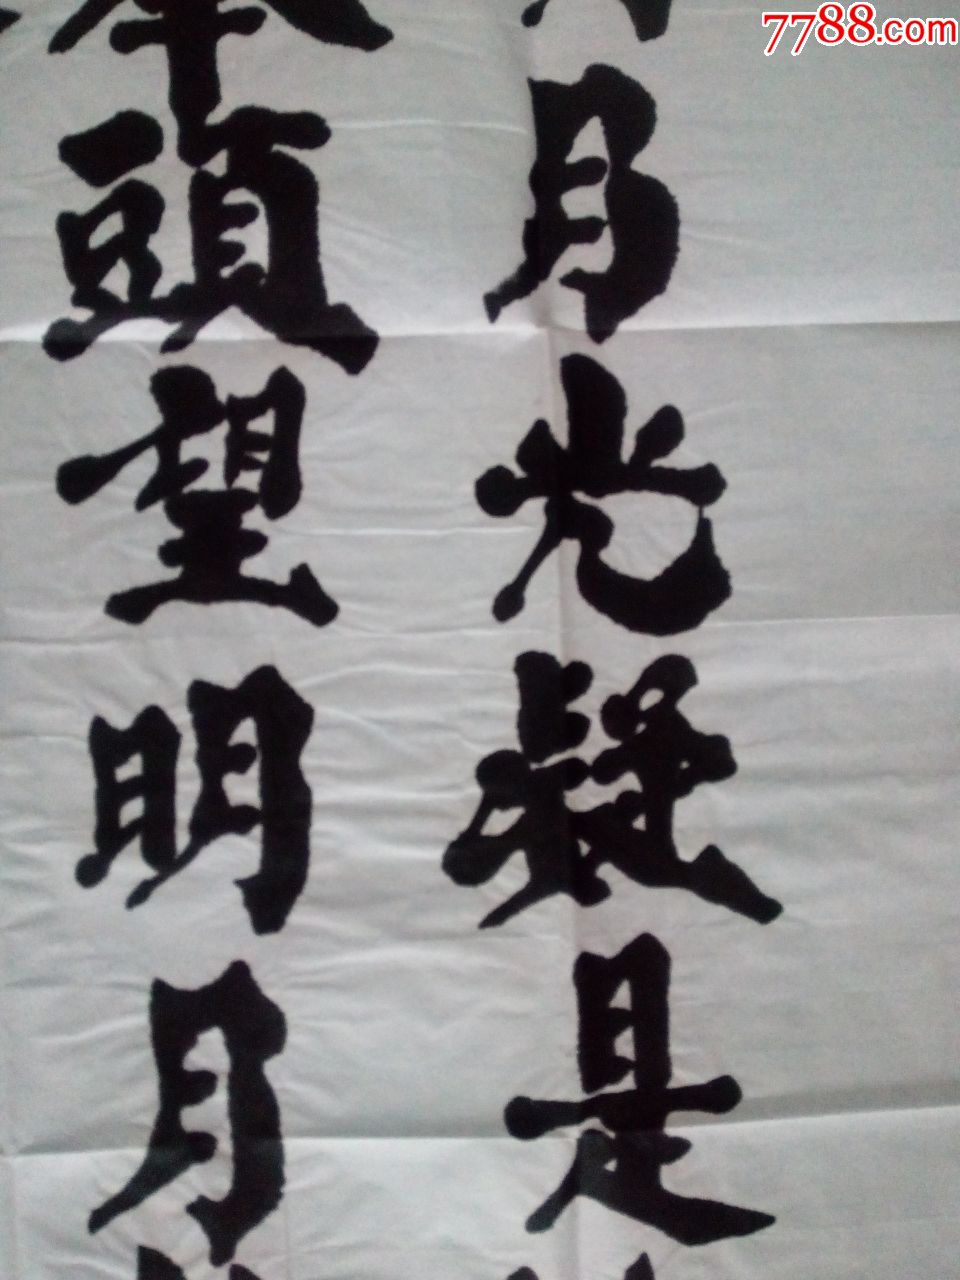 月光凝是
举頭望明月
7788.com